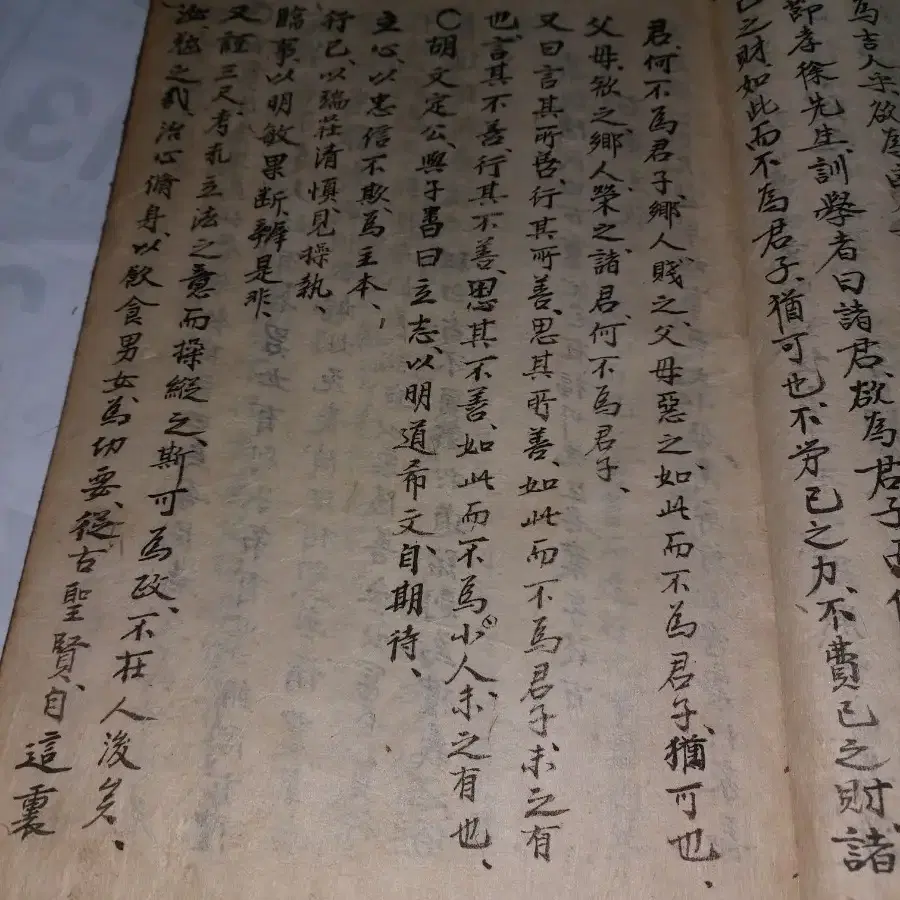 為吉人乎欲為
節孝徐先生、訓學者曰諸君、欲為君子而
己之財、如此而不為君子、猶可也、不労己之力、不費己之財、諸
君、何不為君子、鄉人賤之、父母惡之、如此而不為君子、猶可也、
父母、欲之、鄉人榮之、諸君、何不為君子、
又曰言其所善、行其所善、思其所善、如此而不為君子、未之有
也、言其不善、行其不善、思其不善、如此而不為小人、未之有也、
〇胡文定公、與子書曰立志、以明道希文、自期待、
主心、以忠信不欺、為主本、
行已、以端莊清慎、見操執、
臨事、以明敏果断、辨是非、
又謹三尺、考求立法之意而操縱之、斯可為政、不在人後矣、
汝勉之哉治心脩身、以飲食男女、為切要、從古聖賢、自這裏